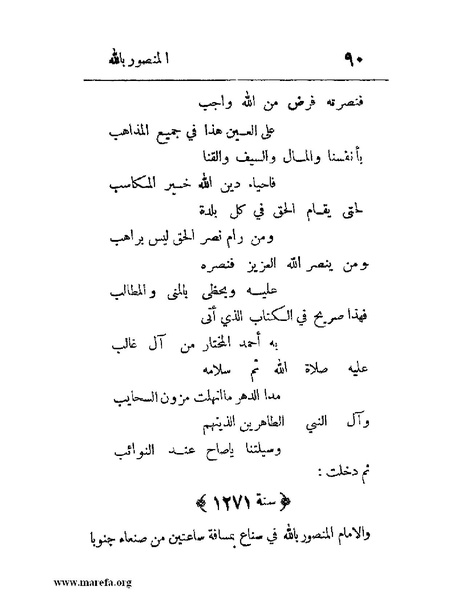 ٩٠ المنصور بالله
فنصرته فرض من الله واجب
على العين هذا في جميع المذاهب
بأنفسنا والمال والسيف والقنا
فاحياء دين الله خير المكاسب
لحتى يقام الحق في كل بلدة
ومن رام نصر الحق ليس براهب
ومن ينصر الله العزيز فنصره
عليه ويحظى بالمنى والمطالب
فهذا صريح في الكتاب الذي أتى
به أحمد المختار من آل غالب
عليه صلاة الله ثم سلامه
مدا الدهر ماانهلت مزون السحايب
وآل النبي الطاهرين الذيتهم
وسيلتنا ياصاح عند النوائب
ثم دخلت :
﴿ سنة ١٢٧١ ﴾
والامام المنصور بالله في سناع بمسافة ساعتين من صنعاء جنوبا
www.marefa.org